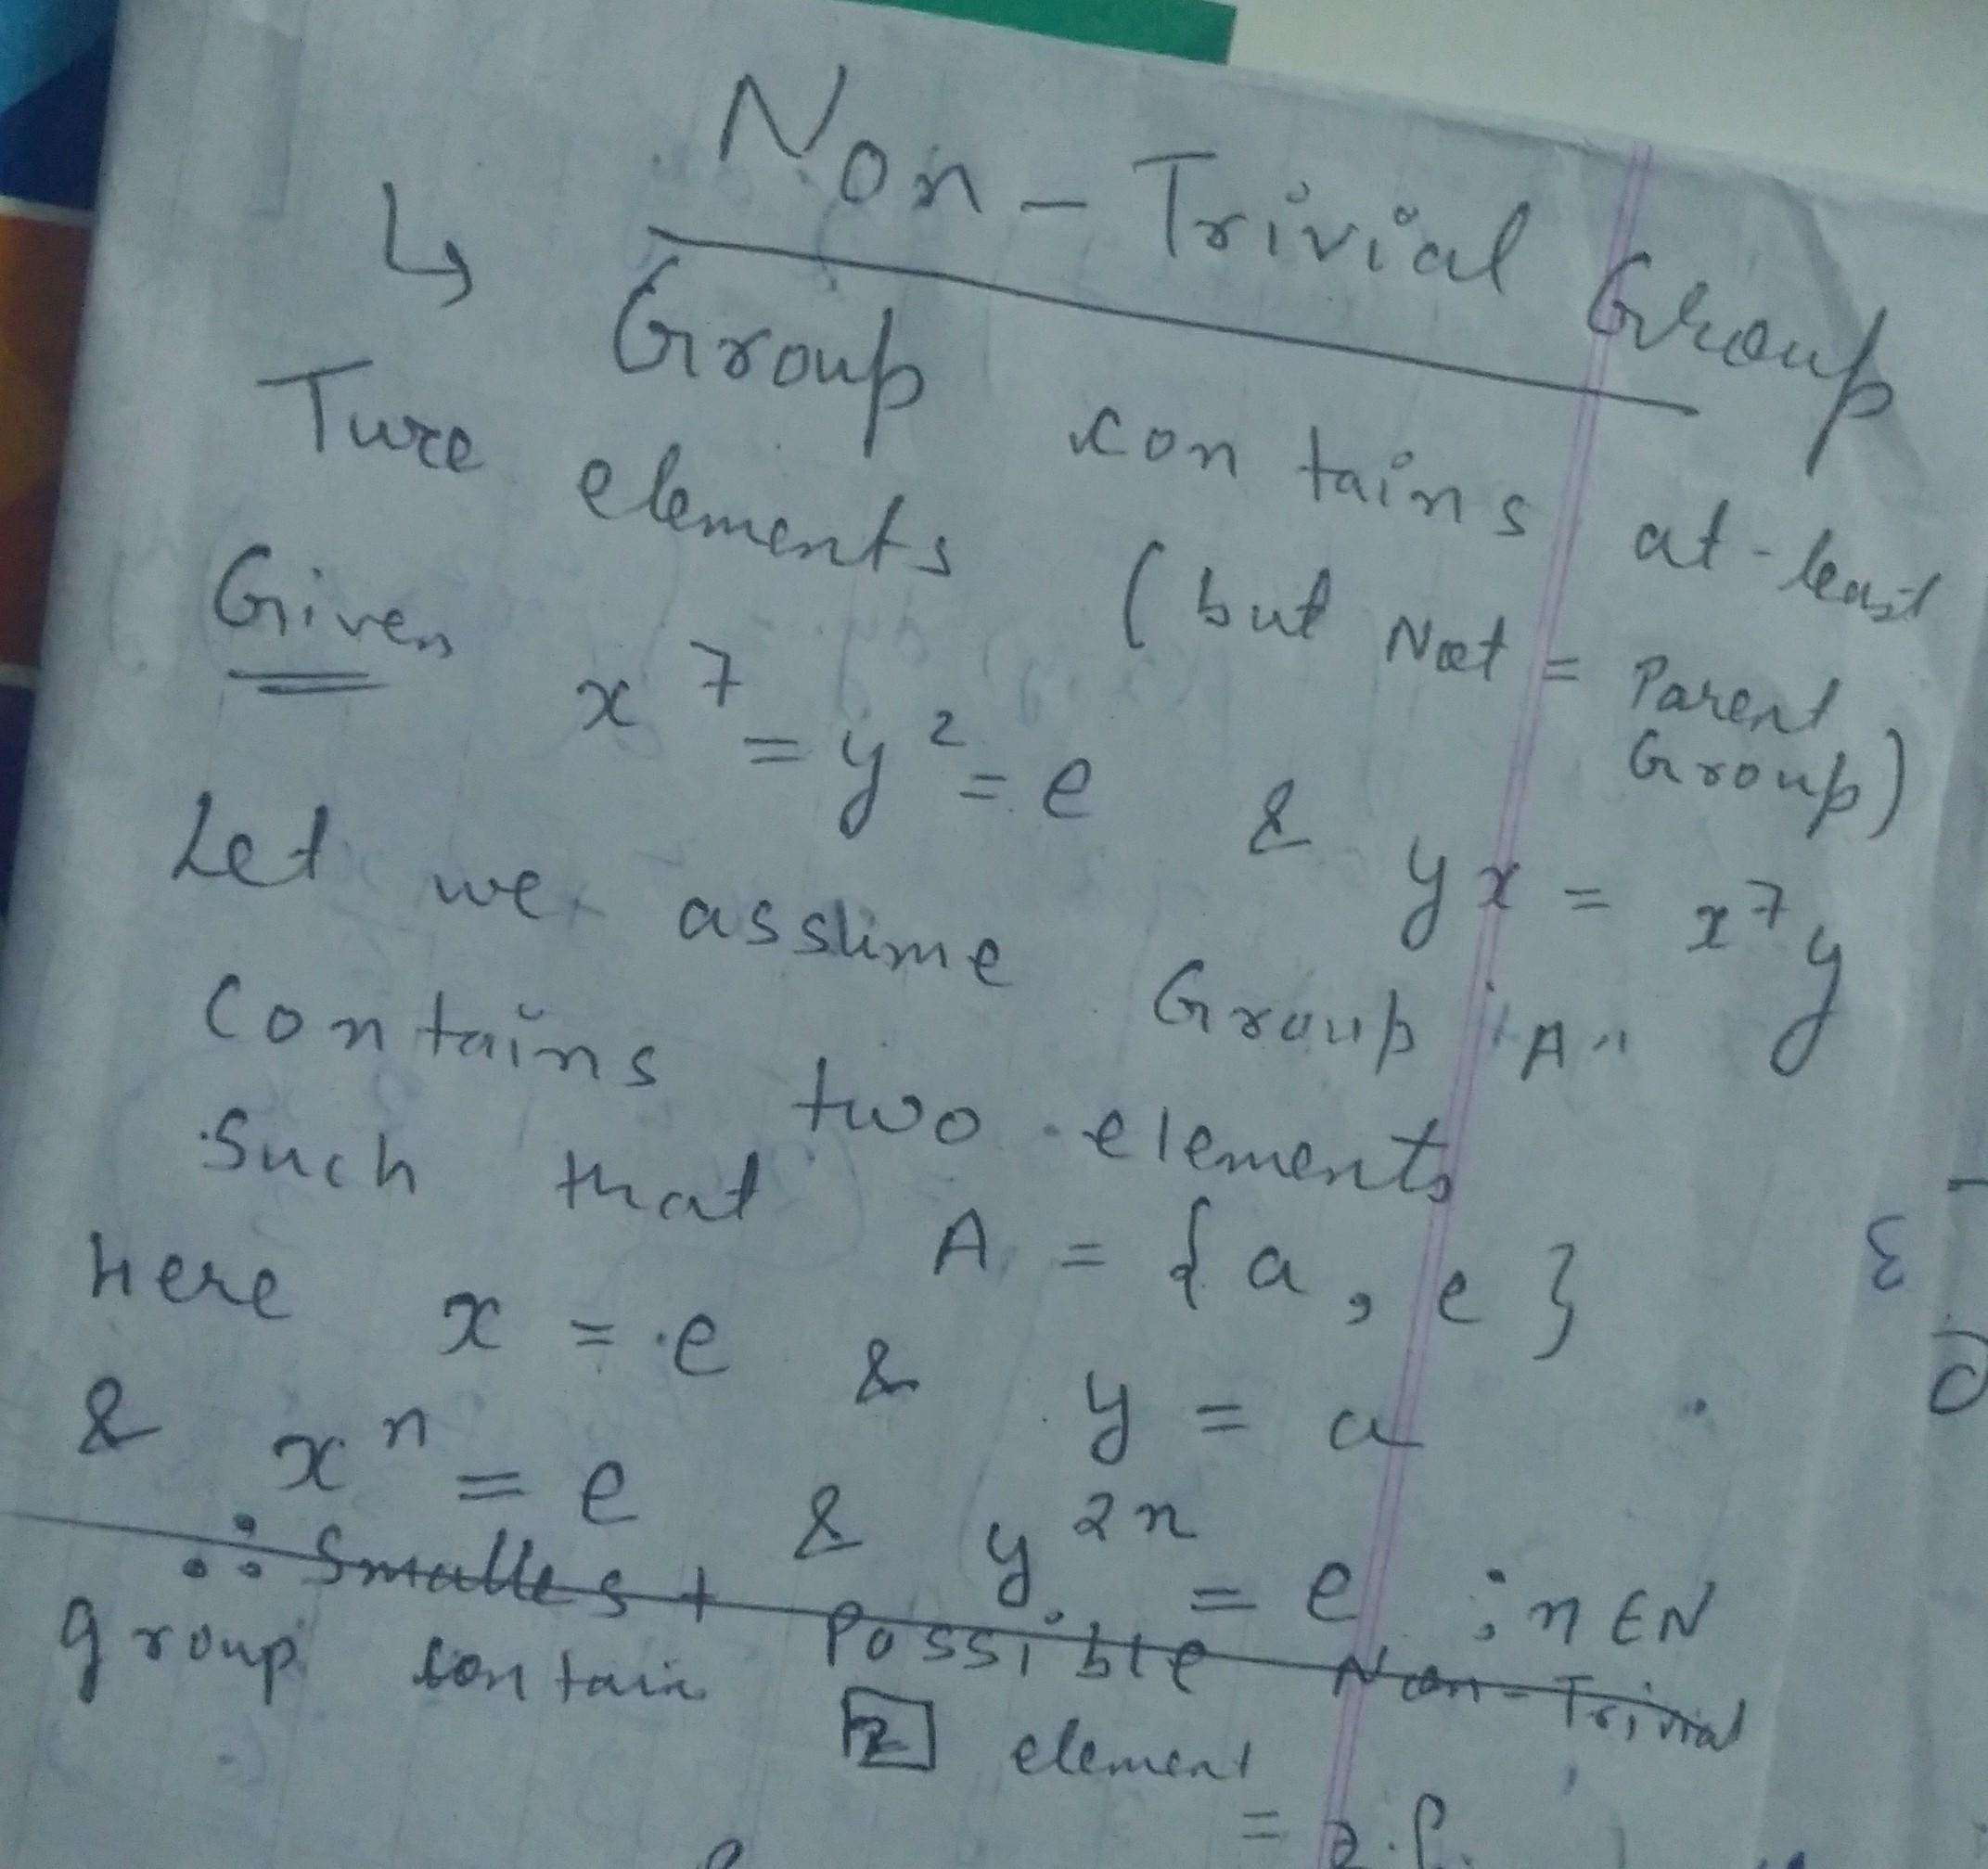 Non-Trivial Group
↳ Group contains at-least
Two elements (but Not = Parent
Group)
Given x⁷ = y² = e & yx = x⁷y
Let we assume Group "A"
Contains two elements
Such that A = {a, e}
Here x = e & y = a
& xⁿ = e & y²ⁿ = e ; n ∈ N
∴ Smallest Possible Non-Trivial
group contain 2 element